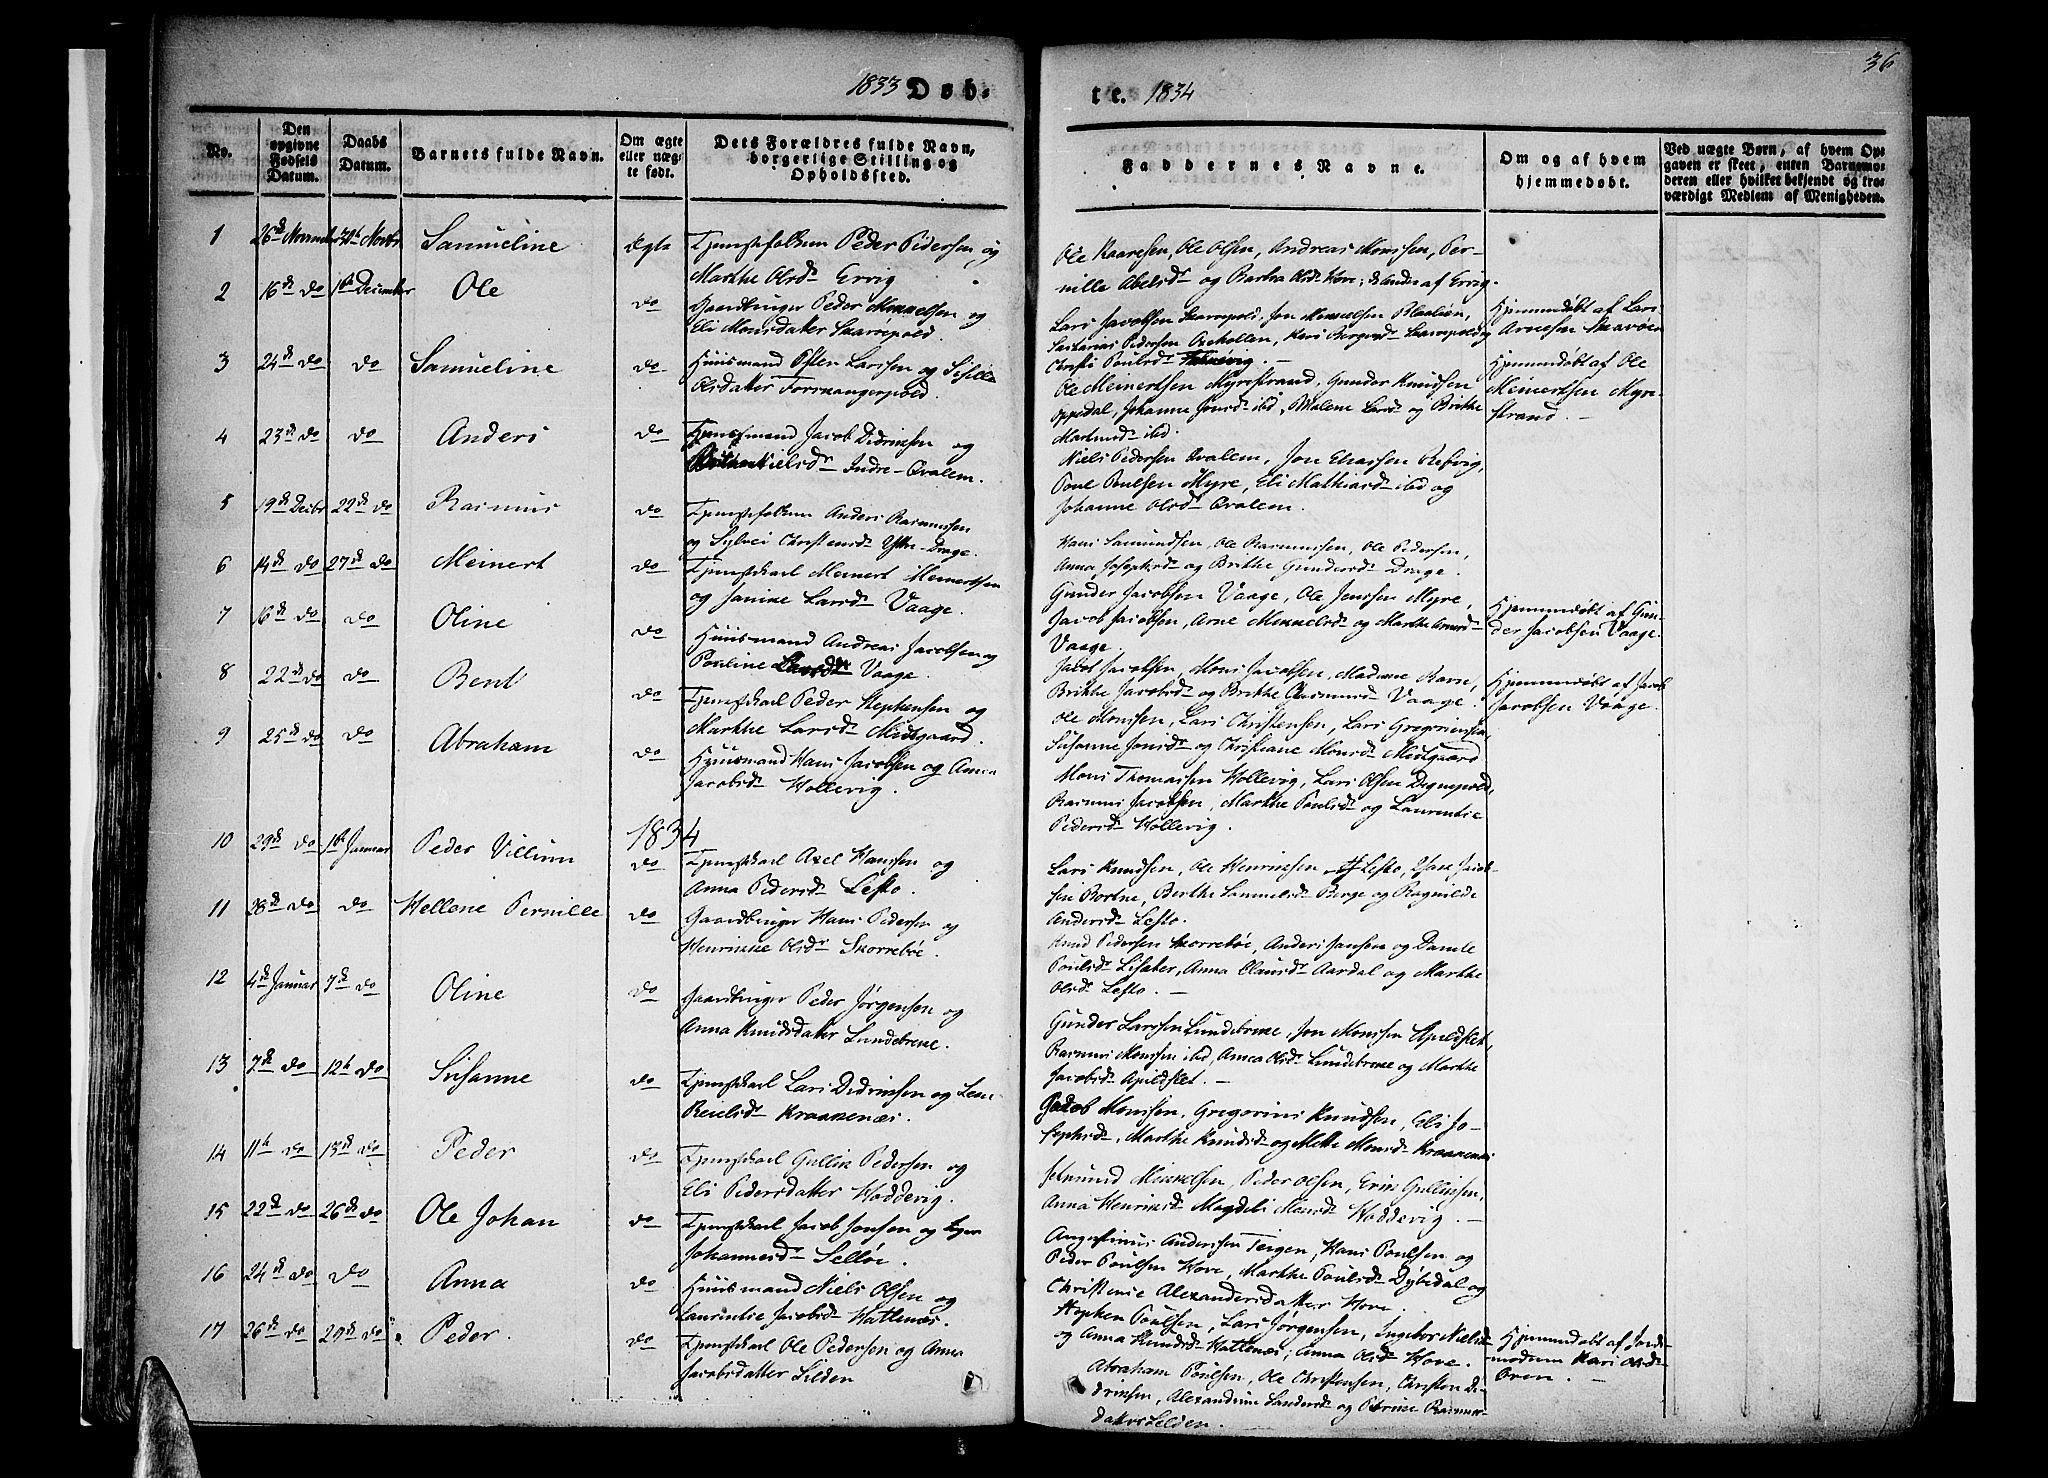 1833 Døb-
te. 1834
36
No.
Den opgivne Fødsels Datum.
Daabs Datum.
Barnets fulde Navn.
Om ægte eller uægte født.
Dets Forældres fulde Navn, borgerlige Stilling og Opholdssted.
Faddernes Navne.
Om og af hvem hjemmedøbt.
Ved uægte Børn, af hvem Opgaven er skeet, enten Barnemoderen eller hvilket bekjendt og troværdigt Medlem af Menigheden.
1 26de November Novbr Samueline Ægte Tjenestefolkene Peder Pedersen og
Marthe Olsdr Ervig
Ole Kaaresen, Ole Olsen, Andreas Monssen, Per-
nille Abelsdr og Barbra Olsdr Hove; de Andre af Ervig.
2 16de do 1ste December Ole do Gaardbruger Peder Mikkelsen og
Eli Monsdatter Skaarepold.
Lars Jacobsen Skaarepold, Jon Mikkelsen
Zacharias Pedersen Kari
Christi Poulsdr
Hjemmedøbt af Lars
Arnesen
3 24de do do Samueline do Huusmand Peter Larssen og Sisille
Olsdatter
Ole Meinertsen Myrestrand, Gunder Knudsen
Oppedal, Johanne Jonsdr ibd, Malene Larsdr og Brithe
Martensdr ibd.
Hjemmedøbt af Ole
Meinertsen Myre-
strand.
4 23de do do Anders do Huusmand Jacob Didriksen og
Nielsdr Indre-Qvalem.
Niels Pedersen Qvalem, Jon Eliassen Refvig,
Poul Poulsen Myre, Eli Mathiasdr ibd og
Johanne Olsdr Qvalem.
5 19de Decbr 22de do Rasmus do Tjenestefolkene Anders Rasmussen
og Sylvei Christensdr Ytre-Drage.
Hans Samundsen, Ole Rasmussen, Ole Pedersen,
Anna Josephsdr og Brithe Gundersdr Drage.
6 14de do 27de do Meinert do Tjenestekarl Meinert Meinertsen
og Janike Larsdr Vaage.
Gunder Jacobsen Vaage, Ole Jenssen Myre,
Jacob Jacobsen, Arne Mikkelsdr og Marthe Arnesdr
Vaage.
Hjemmedøbt af Gun-
der Jacobsen Vaage
7 16de do do Oline do Huusmand Andreas Jacobsen og
Pouline Larsdr Vaage.
Jacob Jacobsen, Mons Jacobsen, Madame Ravn,
Brithe Jacobsdr og Brithe Rasmusdr Vaage.
Hjemmedøbt af Jacob
Jacobsen Vaage.
8 22de do do Bent do Tjenestekarl Peder Stephensen og
Marthe Larsdr Midtgaard.
Ole Monssen, Lars Christensen, Lars Gregoriussen,
Susanne Jonsdr og Christiane Monsdr Midtgaard
9 25de do do Abraham do Huusmand Hans Jacobsen og Anna
Jacobsdr Hollevig.
Mons Thomassen Hollevig, Lars Olsen Degnepold,
Rasmus Jacobsen, Marthe Poulsdr og Laurentie
Pedersdr Hollevig.
1834
10 29de do 1ste Januar Peder Villum do Tjenestekarl Axel Hanssen og
Anna Pedersdr Lefto.
Lars Knudsen, Ole Henriksen Lefto, Jacob-
sen Bortne, Berthe Sammelsdr Berge og Ragnilde
Andersdr Lefto.
11 28de do do Hellene Pernille do Gaardbruger Hans Pedersen og
Henrikke Olsdr Skorrebøe.
Knud Pedersen Skorrebøe, Anders Jansen og Danele
Poulsdr Lisæter, Anna Olausdr Aardal og Marthe
Olsdr Lefto.
12 4de Januar 7de do Oline do Gaardbruger Peder Jørgensen og
Anna Knudsdatter Lundebrekke.
Gunder Larssen Lundebrekke, Jon Monssen Apildset,
Rasmus Monssen ibd, Anna Olsdr Lundebrekke og Marthe
Jacobsdr Apildset.
13 7de do 12te do Susanne do Tjenestekarl Lars Didriksen og
Kraakenæs.
Jacob Monssen, Gregorius Knudsen, Eli Jo-
sephsdr, Marthe Knudsdr og Mette Monsdr Kraakenæs
14 11te do 13de do Peder do Tjenestekarl Gullik Pedersen og
Eli Pedersdatter Hoddevig.
Mikkelsen, Peder Olsen, Erik Gulliksen,
Anna Henriksdr Magdeli Monsdr Hoddevig.
15 22de do 26de do Ole Johan do Tjenestekarl Jacob Jonsen og
Johannesdr Selløe.
Augustinus Anderssen Teigen, Hans Poulsen og
Peder Poulsen Hove, Marthe Poulsdr Dybedal og
Christence Alexandersdatter Hove.
16 24de do do Anna do Huusmand Niels Olsen og
Laurentie Jacobsdr Hattenæs.
Stephen Poulsen, Lars Jørgensen, Ingebor Nielsdr
og Anna Knudsdr Hattenæs; Anna Olsdr Hove.
17 26de do 29de do Peder. do Tjenestekarl Ole Pedersen og Anna
Jacobsdatter Silden
Abraham Poulsen, Ole Christensen, Christen Di-
driksen, Alexandrine Sandersdr og Rasmus-
datter Selden.
Hjemmedøbt af Jorde-
moderen Kari Olsdr
Oren.